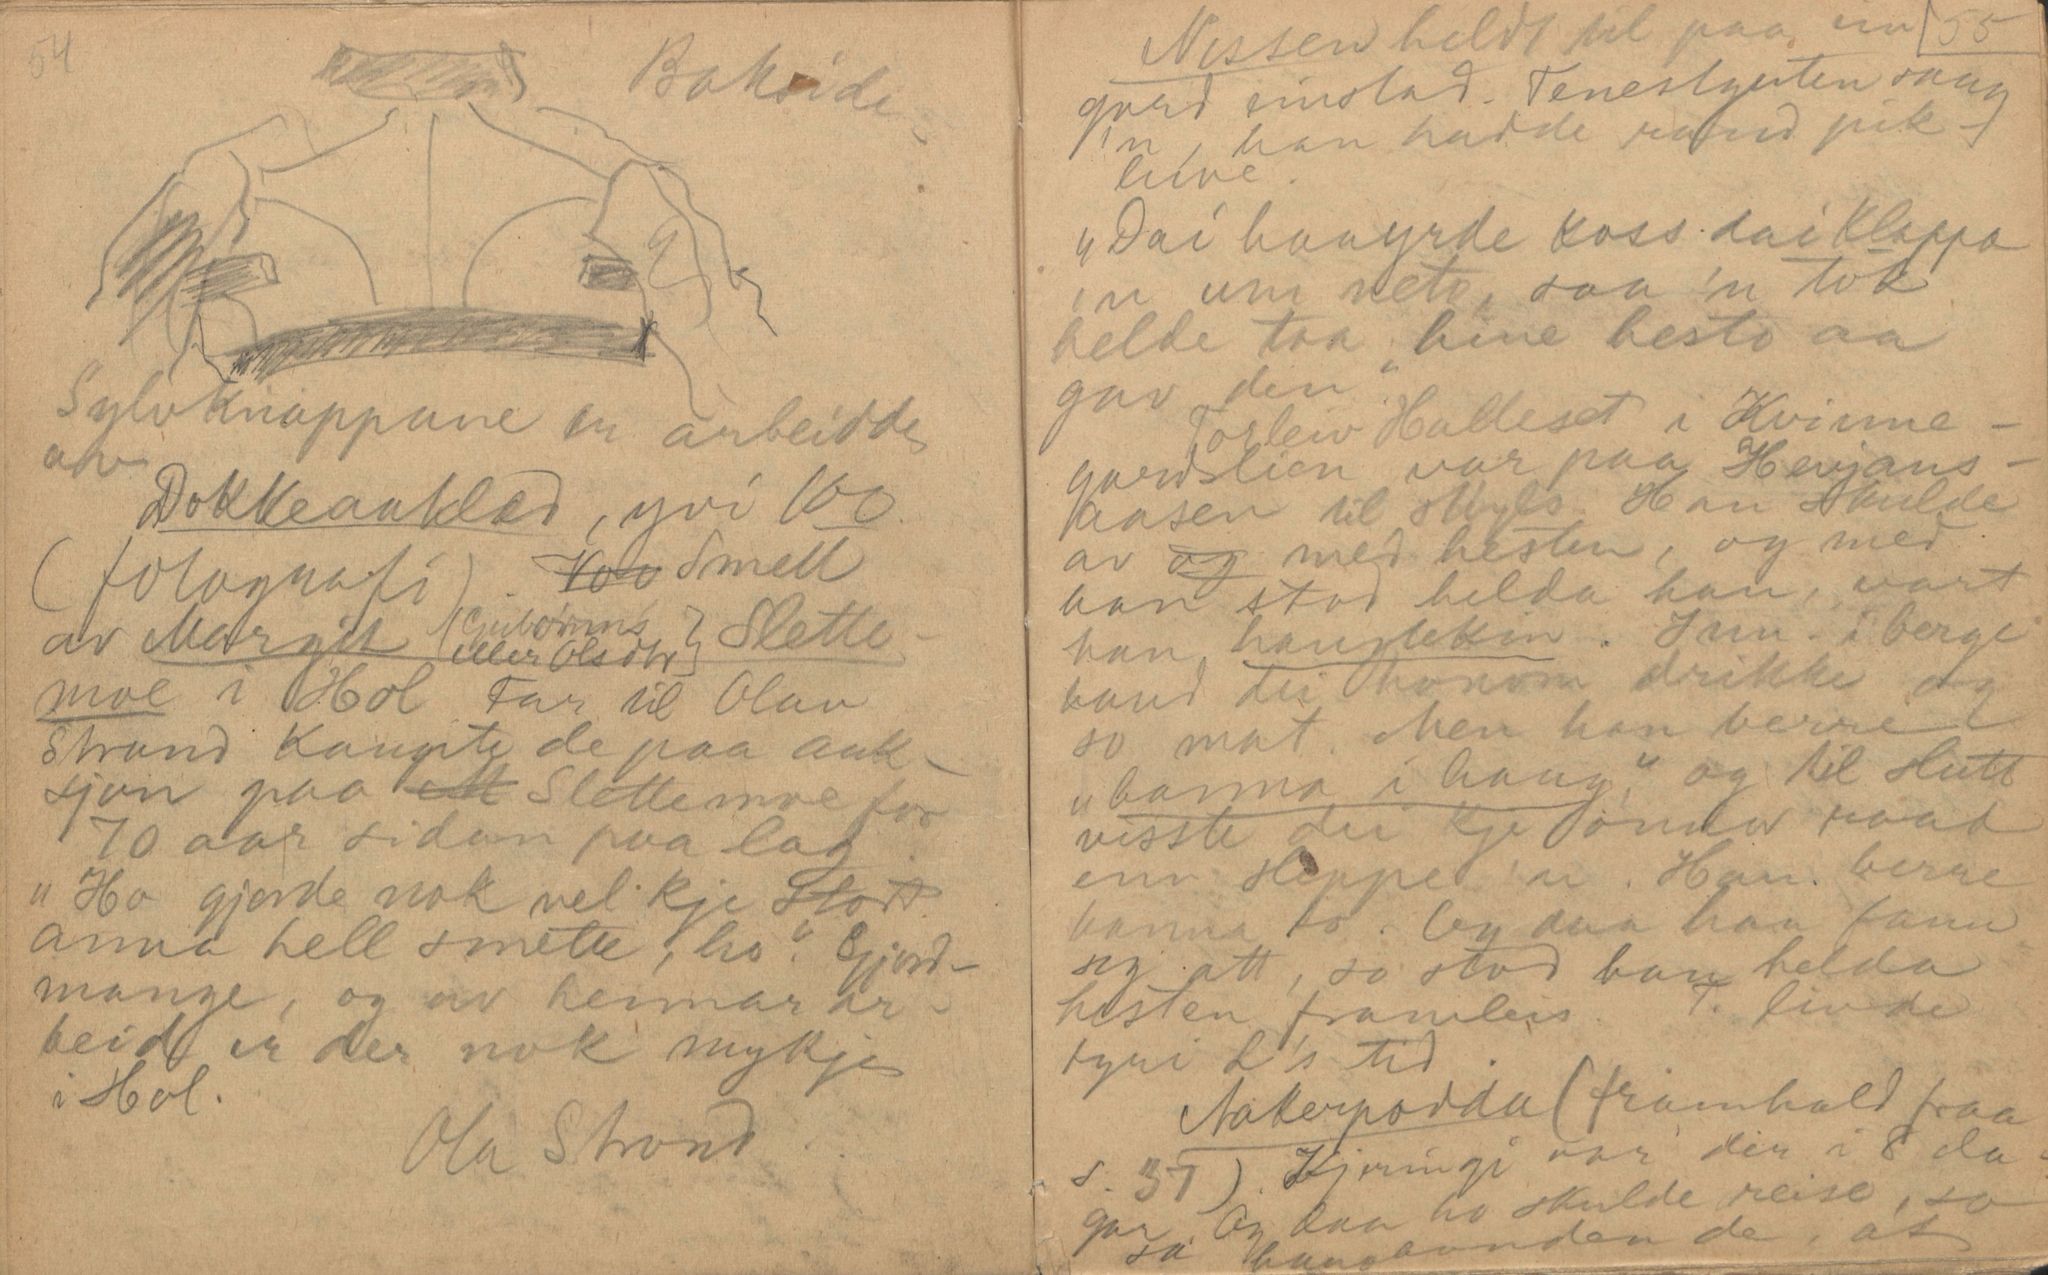 54
Bakside
Sylvknappane er arbeidde
av
Dokkeaaklæd, yvi 100
(fotografi). 100 Smett
av Margit (Guibørns eller Olsdtr) Slette-
moe i Hol Far til Olav
Strand kaupte de paa auk-
sjon paa ett Slettemoe for
70 aar sidan paa lag.
"Ho gjorde nok vel kje stort
anna hell smette, ho". Gjord-
mange, og av heimar ar-
beid er der nok mykje
i Hol.
Ola Strand
55
Nissen heldt til paa ein
gard einstad. Tenestguten saag
'n, han hadde raud pik-
luve.
"Dai haayrde koss dai klappa
'n um neto, saa 'n tok
helde taa hine hesto aa
gav den"
Torleiv Halleset i Kvinne-
gardslien var paa Hevjans-
aasen til skyls. Han skulde
av og med hesten, og med
han stod helda han, vart
han haugtekin. Inn i berge
baud dei honom drikke og
so mat. Men han berre
"banna i haug," og til slutt
visste dei kje onnor raad
enn sleppe 'n. Han berre
banna so. Og daa han fann
seg att, so stod han helda
hesten framleis. T. livde
fyri L's tid.
Nakerpodda (framhald fraa
s. 37). Kjeringi var der i 8 da-
gar Og daa ho skulde reise, so
sa haugbonden de, at